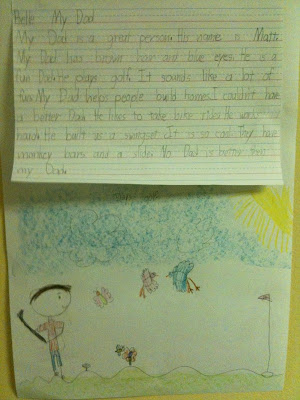 Belle My Dad
My Dad is a great person. His name is Matt.
My Dad has brown hair and blue eyes. He is a
fun Dad. He plays golf. It sounds like a lot of
fun. My Dad helps people build homes. I couldn't have
a better Dad. He likes to take bike rides. He works
hard. He built us a swingset. It is so cool. They have
monkey bars and a slide. No Dad is better then
my Dad.